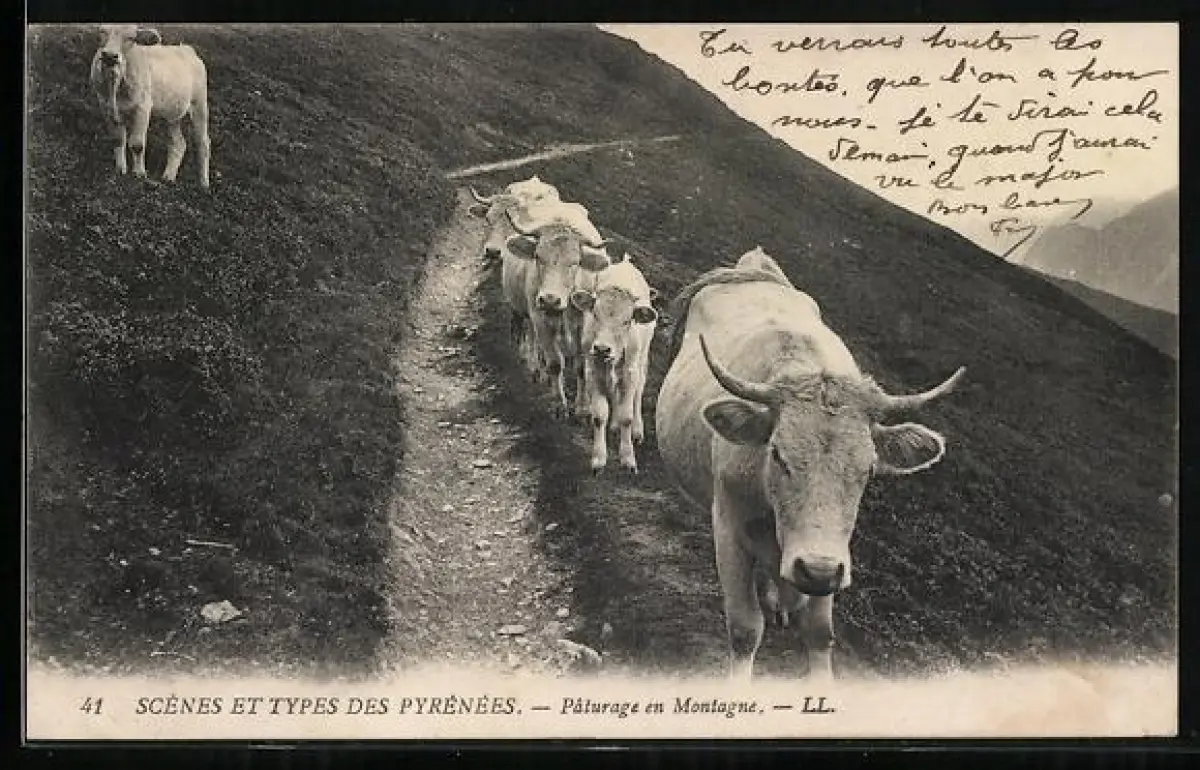 Tu verrais toutes les
bontés, que l'on a pour
nous - je te dirai cela
demain, quand j'aurai
vu le major
Bon
41 SCÈNES ET TYPES DES PYRÉNÉES. — Pâturage en Montagne. — LL.